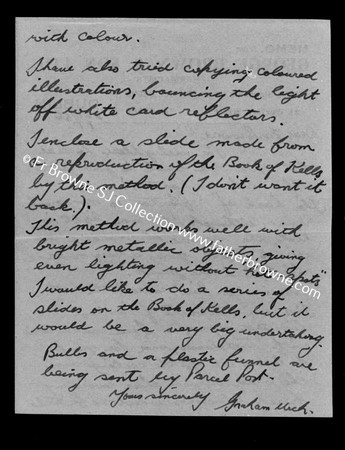 with colour.
I have also tried copying coloured
illustrations, bouncing the light
off white card reflectors.
I enclose a slide made from
a reproduction of the Book of Kells
by this method. (I don't want it
back.).
This method works well with
bright metallic objects, giving
even lighting without hot spots"
I would like to do a series of
slides on the Book of Kells, but it
would be a very big undertaking.
Bulbs and a plastic funnel are
being sent by Parcel Post.
Yours sincerely Graham
© Fr Browne SJ Collection www.fatherbrowne.com